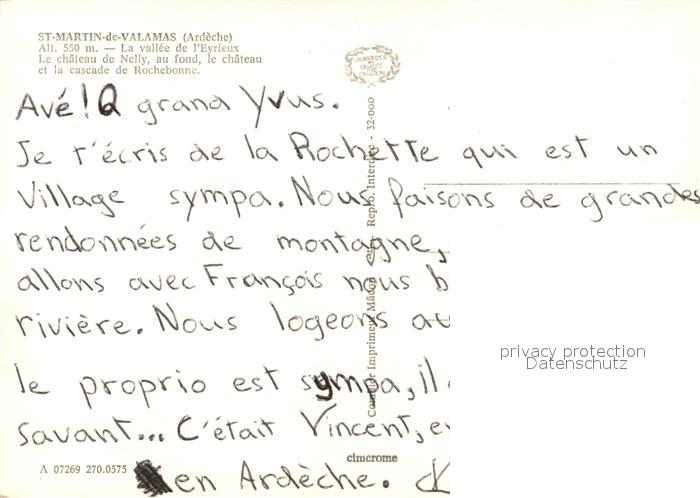 ST-MARTIN-de-VALAMAS (Ardèche)
Alt. 550 m. — La vallée de l'Eyrieux
Le château de Nelly, au fond, le château
et la cascade de Rochebonne.
Avé! Q grand Yvus.
Je t'écris de la Rochette qui est un
Village sympa. Nous faisons de grandes
rendonnées de montagne,
allons avec François nous b
rivière. Nous logeons au
le proprio est sympa, il
savant... C'était Vincent, e
en Ardèche.
Imprimeur Mâcon
Repro. Interdite - 32-000
cimcrome
A 07269 270.0575
privacy protection
Datenschutz